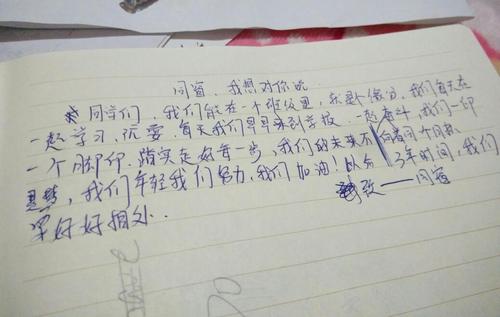 同窗，我想对你说
同学们，我们能在一个班级里，就是个缘分，我们每天在
一起学习，玩耍，每天我们早早来到学校，一起奋斗，我们一步
一个脚印，踏实走好每一步，我们的未来不
，我们年轻我们努力，我们加油！以后 3年时间，我们
好好相处。 致——同窗